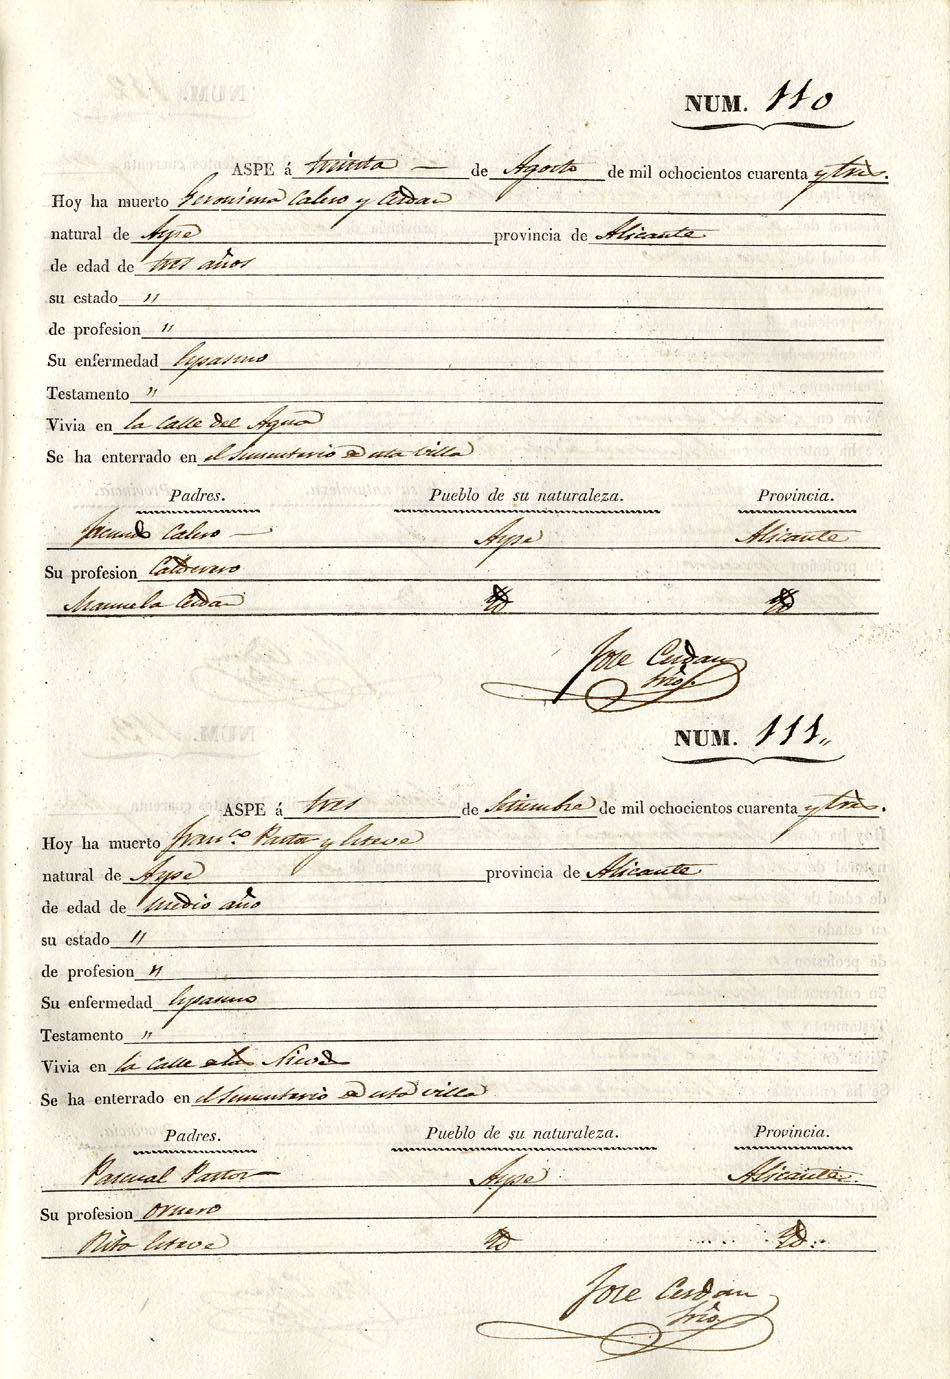 NUM. 110
ASPE á treinta de Agosto de mil ochocientos cuarenta y tres.
Hoy ha muerto Geronima Calero y Cerdan
natural de Aspe provincia de Alicante
de edad de tres años
su estado "
de profesion "
Su enfermedad Espasmo
Testamento "
Vivia en la calle del Agua
Se ha enterrado en el Sementerio de esta villa
Padres. Pueblo de su naturaleza. Provincia.
Calero Aspe Alicante
Su profesion
Manuela Cerdan Yd Yd
Jose Cerdan
Srio.
NUM. 111"
ASPE á tres de Setiembre de mil ochocientos cuarenta y tres.
Hoy ha muerto Fran.co Pastor y Esteve
natural de Aspe provincia de Alicante
de edad de medio año
su estado "
de profesion "
Su enfermedad Espasmo
Testamento "
Vivia en la calle de la
Se ha enterrado en el Sementerio de esta villa
Padres. Pueblo de su naturaleza. Provincia.
Pascual Pastor Aspe Alicante
Su profesion
Rita Esteve Yd Yd
Jose Cerdan
Srio